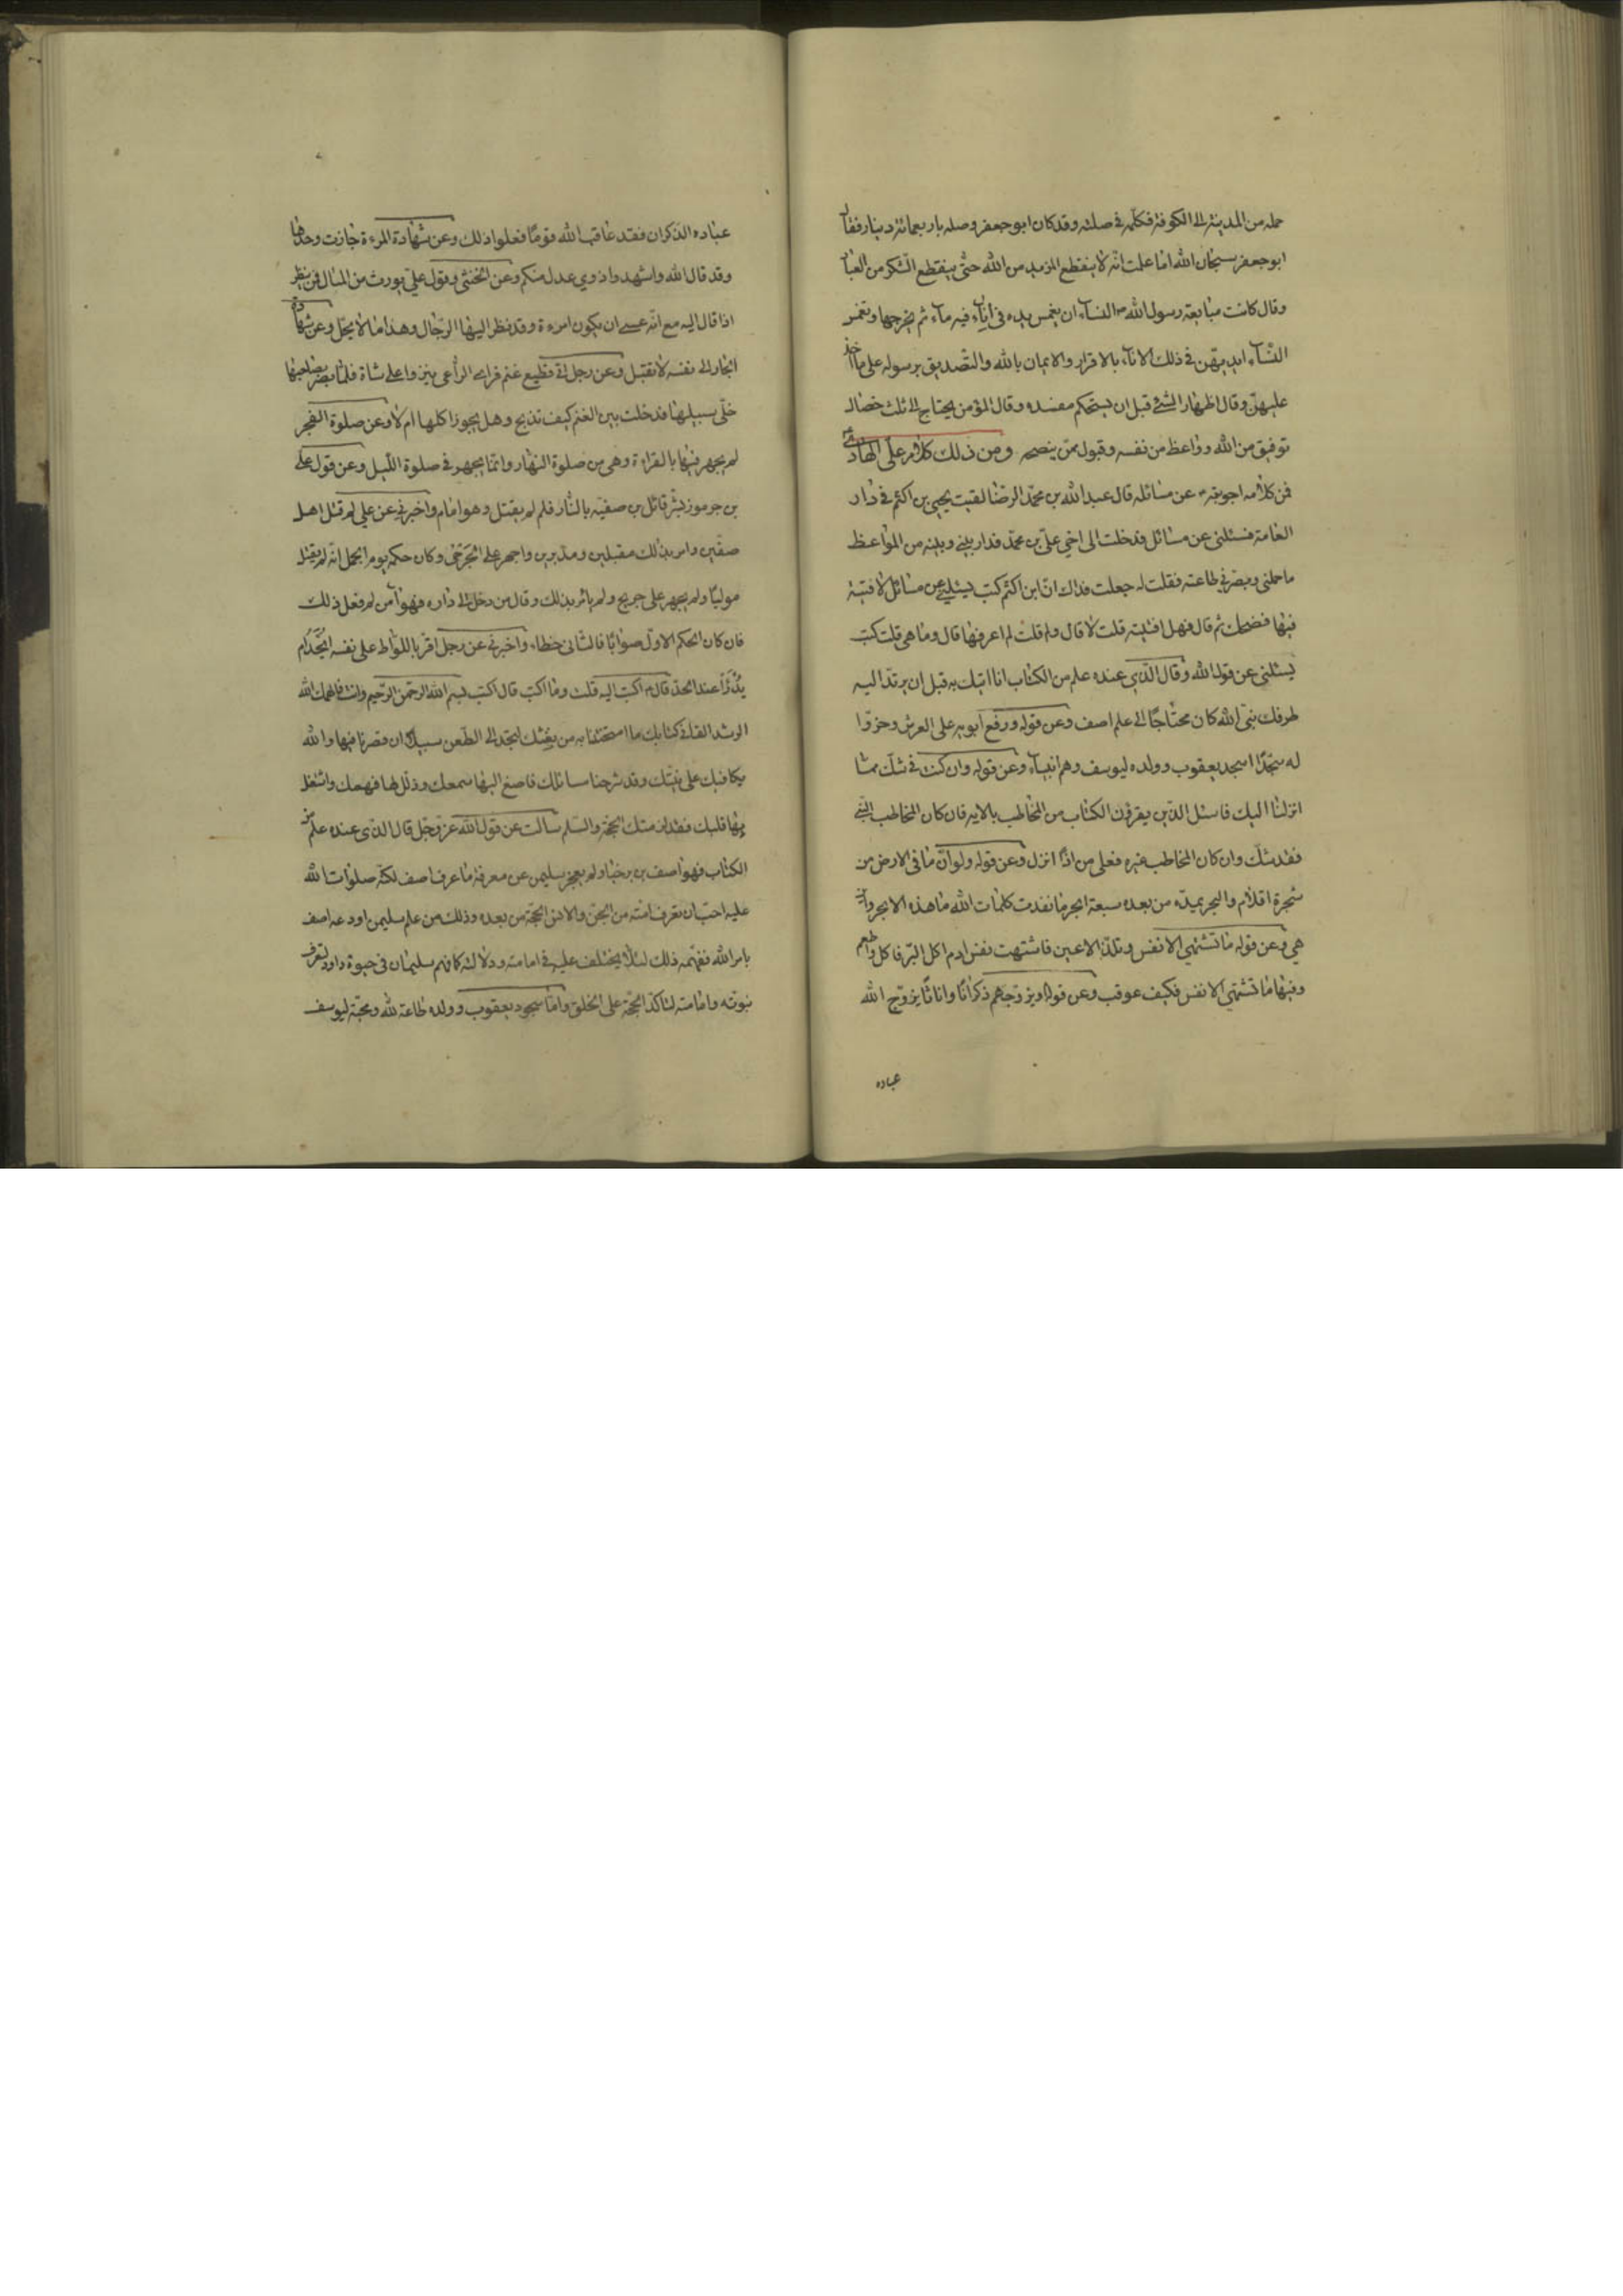 حمله من المدينة الى الكوفة فكلّمه فى صلته وقد كان ابو جعفر وصله باربعمائة دينار فقال
ابو جعفر سبحان الله اما علمت انّه لا ينقطع المزيد من الله حتّى ينقطع الشكر من العباد
وقال كانت مبايعة رسول الله ص النساء ان يغمس يده فى اناء فيه ماء ثم يخرجها وتغمس
النساء ايديهن فى ذلك الاناء بالاقرار والايمان بالله والتصديق برسوله على ما اخذ
عليهنّ وقال اظهار الشئ قبل ان يستحكم مفسدة وقال المؤمن يحتاج الى ثلث خصال
توفيق من الله وواعظ من نفسه وقبول ممّن ينصحه ومن ذلك كلام على الهادى
فمن كلامه اجوبته عن مسائله قال عبد الله بن محمد الرضا لقيت يحيى بن اكثم فى دار
العامة فسئلنى عن مسائل فدخلت الى اخى علىّ بن محمّد فدار بينى وبينه من المواعظ
ما حملنى وبصّرنى طاعته فقلت له جعلت فداك انّ ابن اكثم كتب يسئلنى عن مسائل لافتيه
فيها فضحك ثم قال فهل افتيته قلت لا قال ولم قلت لم اعرفها قال وما هى قلت كتب
يسئلنى عن قول الله وقال الّذى عنده علم من الكتاب انا اتيك به قبل ان يرتدّ اليه
طرفك نبىّ الله كان محتاجًا الى علم اصف وعن قوله ورفع ابويه على العرش وخرّوا
له سجّدًا اسجد يعقوب وولده ليوسف وهم انبياء وعن قوله وان كنت فى شكّ ممّا
انزلنا اليك فاسئل الّذين يقرؤن الكتاب من المخاطب بالاية فان كان المخاطب النبى
فقد شكّ وان كان المخاطب غيره فعلى من اذًا انزل وعن قوله ولو انّ ما فى الارض من
شجرة اقلام والبحر يمدّه من بعده سبعة ابحر ما نفدت كلمات الله ما هذه الابحر واين
هى وعن قوله ما تشتهى الانفس وتلذّ الاعين فاشتهت نفس ادم اكل البرّ فاكل واطعم
وفيها ما تشتهى الانفس فكيف عوقب وعن قوله او يزوّجهم ذكرانًا واناثًا يزوّج الله
عباده
عباده الذكران فقد عاقب الله قومًا فعلوا ذلك وعن شهادة المرءة جازت وحدها
وقد قال الله واشهدوا ذوى عدل منكم وعن الخنثى وقول علىّ يورث من المبال فمن ينظر
اذا قال اليه مع انّه عسى ان يكون امرءة وقد نظر اليها الرّجال وهذا ما لا يحلّ وعن شهادة
الجار الى نفسه لا تقبل وعن رجل اتى قطيع غنم فراى الراعى ينزو على شاة فلمّا بصر بصاحبها
خلّى سبيلها فدخلت بين الغنم كيف تذبح وهل يجوز اكلها ام لا وعن صلوة الفجر
لم يجهر فيها بالقراءة وهى من صلوة النهار وانّما يجهر فى صلوة اللّيل وعن قول على
بن جرموز بشّر قاتل بن صفيّه بالنّار فلم لم يقتل وهو امام واخبرنى عن على لم قتل اهل
صفّين وامر بذلك مقبلين ومدبرين واجهز على الجرحى وكان حكمه يوم الجمل انّه لم يقتل
موليًا ولم يجهز على جريح ولم يأمر بذلك وقال من دخل الى داره فهو آمن لم فعل ذلك
فان كان الحكم الاوّل صوابًا فالثانى خطاء واخبرنى عن رجل اقرّ باللواط على نفسه ايحدّ ام
يدرا عند الحدّ قال اكتب اليه قلت وما اكتب قال اكتب بسم الله الرحمن الرّحيم وانت فالهمك الله
الرشد القانى كتابك ما امتحنتنا به من تعنّتك لتجد الى الطّعن سبيلا ان قصرنا فيها والله
يكافيك على نيّتك وقد شرحنا مسائلك فاصغ اليها سمعك وذلّل لها فهمك واشغل
بها قلبك فقد لزمتك الحجّة والسّلم سالت عن قول الله عزّ وجل قال الّذى عنده علم من
الكتاب فهو اصف بن برخيا ولم يعجز سليمن عن معرفة ما عرف اصف لكنّه صلوات الله
عليه احبّ ان تعرف امّته من الجنّ والانس انّه الحجّة من بعده وذلك من علم سليمن اودعه اصف
بامر الله ففهّمه ذلك لئلّا يختلف عليه فى امامته ودلالته كما فهم سليمان فى حيوة داود لتعرف
نبوّته وامامته لتاكّد الحجّة على الخلق وامّا سجود يعقوب وولده طاعة لله ومحبّة ليوسف